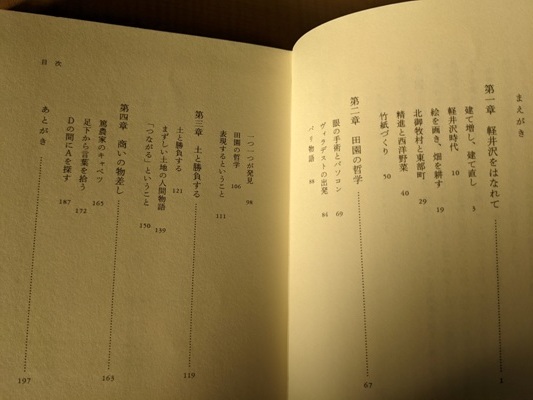 まえがき
第一章 軽井沢をはなれて 1
建て増し、建て直し 3
軽井沢時代 10
絵を画き、畑を耕す 19
北御牧村と東部町 29
精進と西洋野菜 40
竹紙づくり 50
第二章 田園の哲学 67
眼の手術とパソコン 69
ヴィクデストの出発 81
パリ物語 88
目次
一つ一つが発見 98
田園の哲学 106
表現するということ 111
第三章 土と勝負する 119
土と勝負する 121
まずしい土地の人間物語 139
「つながる」ということ 150
第四章 商いの物差し 163
篤農家のキャベツ 165
足下から言葉を拾う 172
Dの間にAを探す 187
あとがき 197